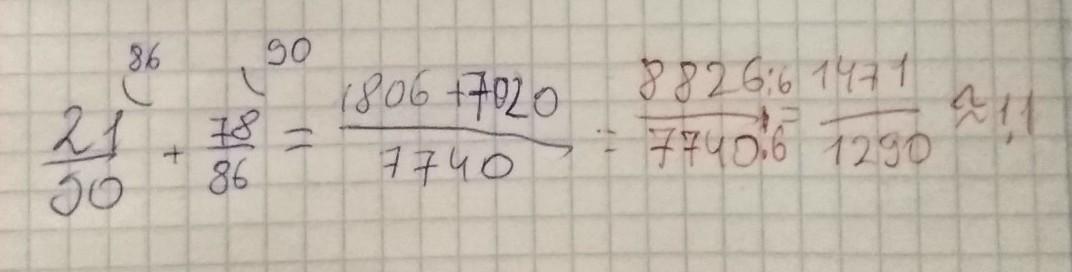 86 90
21/90 + 78/86 = 1806+7020/7740 = 8826:6/7740:6 = 1471/1290 ≈ 1,1